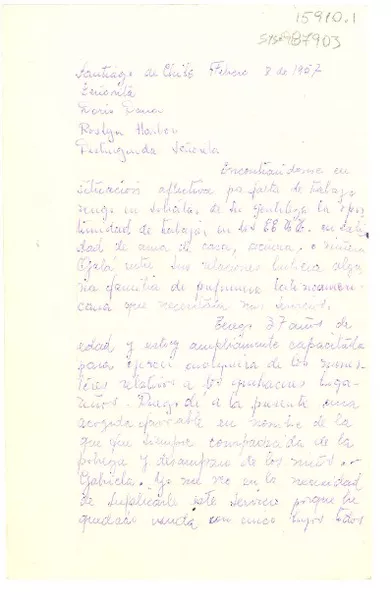 15910.1
987903
Santiago de Chile Febrero 8 de 1957
Señorita
Doris Dana
Roslyn Harbor
Distinguida Señorita
Encontrándome en
situación aflictiva por falta de trabajo
vengo en solicitar de Su gentileza la opor
tunidad de trabajar en los EE.UU. en cali
dad de ama de casa, o niñera
Ojalá entre sus relaciones hubiera algu
na familia de preferencia latinoameri
cana que necesitara mis servicios.
Tengo 37 años de
edad y estoy ampliamente capacitada
para ejercer cualquiera de los menes
teres relativos a los quehaceres hoga
reños. Ruego dé a la presente una
acogida favorable en nombre de la
que fue siempre compadecida de la
pobreza y desamparo de los niños
Gabriela. Yo me veo en la necesidad
de suplicarle este servicio porque he
quedado viuda con cinco hijos todos